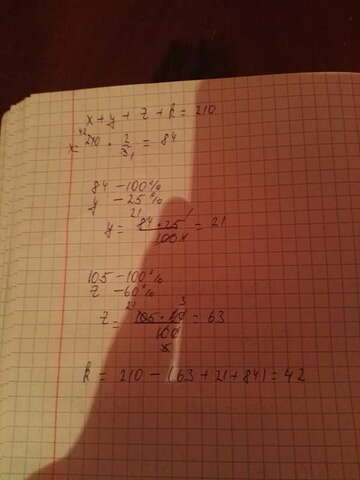 x + y + z + k = 210
x = 210 · 2/5 = 84
84 – 100%
y – 25%
y = 84 · 25 / 100 = 21
105 – 100%
z – 60%
z = 105 · 60 / 100 = 63
k = 210 – (63 + 21 + 84) = 42